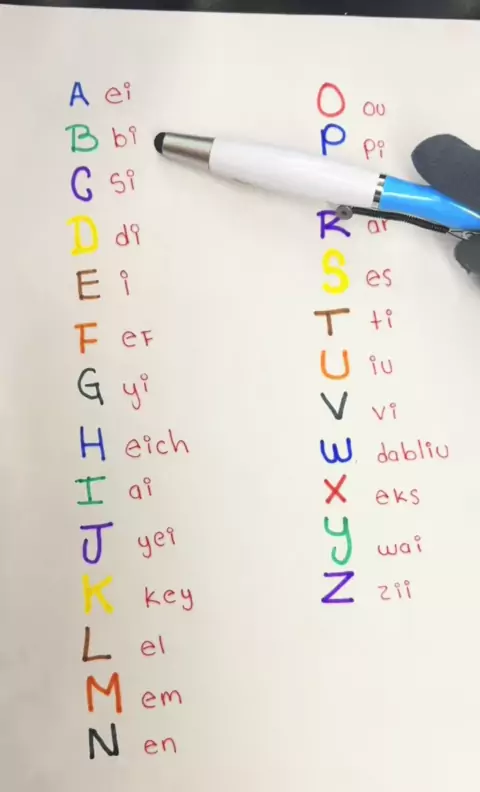 A ei
B bi
C si
D di
E i
F eF
G yi
H eich
I ai
J yei
K key
L el
M em
N en
O ou
P pi
R ar
S es
T ti
U iu
V vi
W dabliu
X eks
Y wai
Z zii